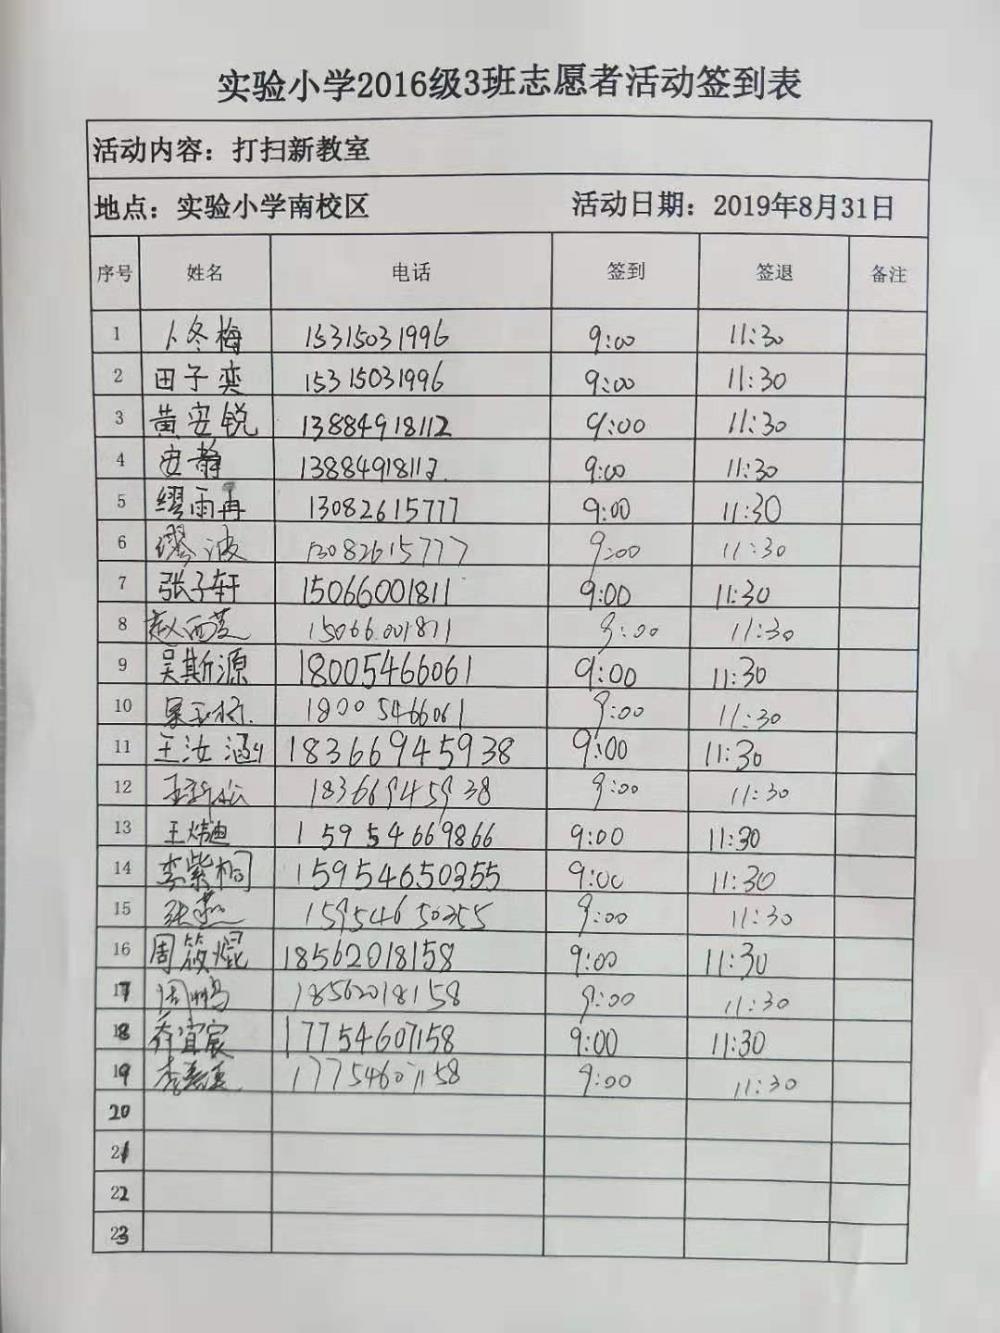 实验小学2016级3班志愿者活动签到表
活动内容：打扫新教室
地点：实验小学南校区 活动日期：2019年8月31日
序号 姓名 电话 签到 签退 备注
1 卜冬梅 15315031996 9:00 11:30
2 田子奕 15315031996 9:00 11:30
3 黄安锐 13884918112 9:00 11:30
4 安静 13884918112 9:00 11:30
5 缪雨冉 13082615777 9:00 11:30
6 缪波 13082615777 9:00 11:30
7 张子轩 15066001811 9:00 11:30
8 15066001811 9:00 11:30
9 吴斯源 18005466061 9:00 11:30
10 18005466061 9:00 11:30
11 王汝涵 18366945938 9:00 11:30
12 18366945938 9:00 11:30
13 王炜迪 15954669866 9:00 11:30
14 李紫桐 15954650355 9:00 11:30
15 15954650355 9:00 11:30
16 周筱焜 18562018158 9:00 11:30
17 周鹏 18562018158 9:00 11:30
18 乔宜宸 17754607158 9:00 11:30
19 17754607158 9:00 11:30
20
21
22
23